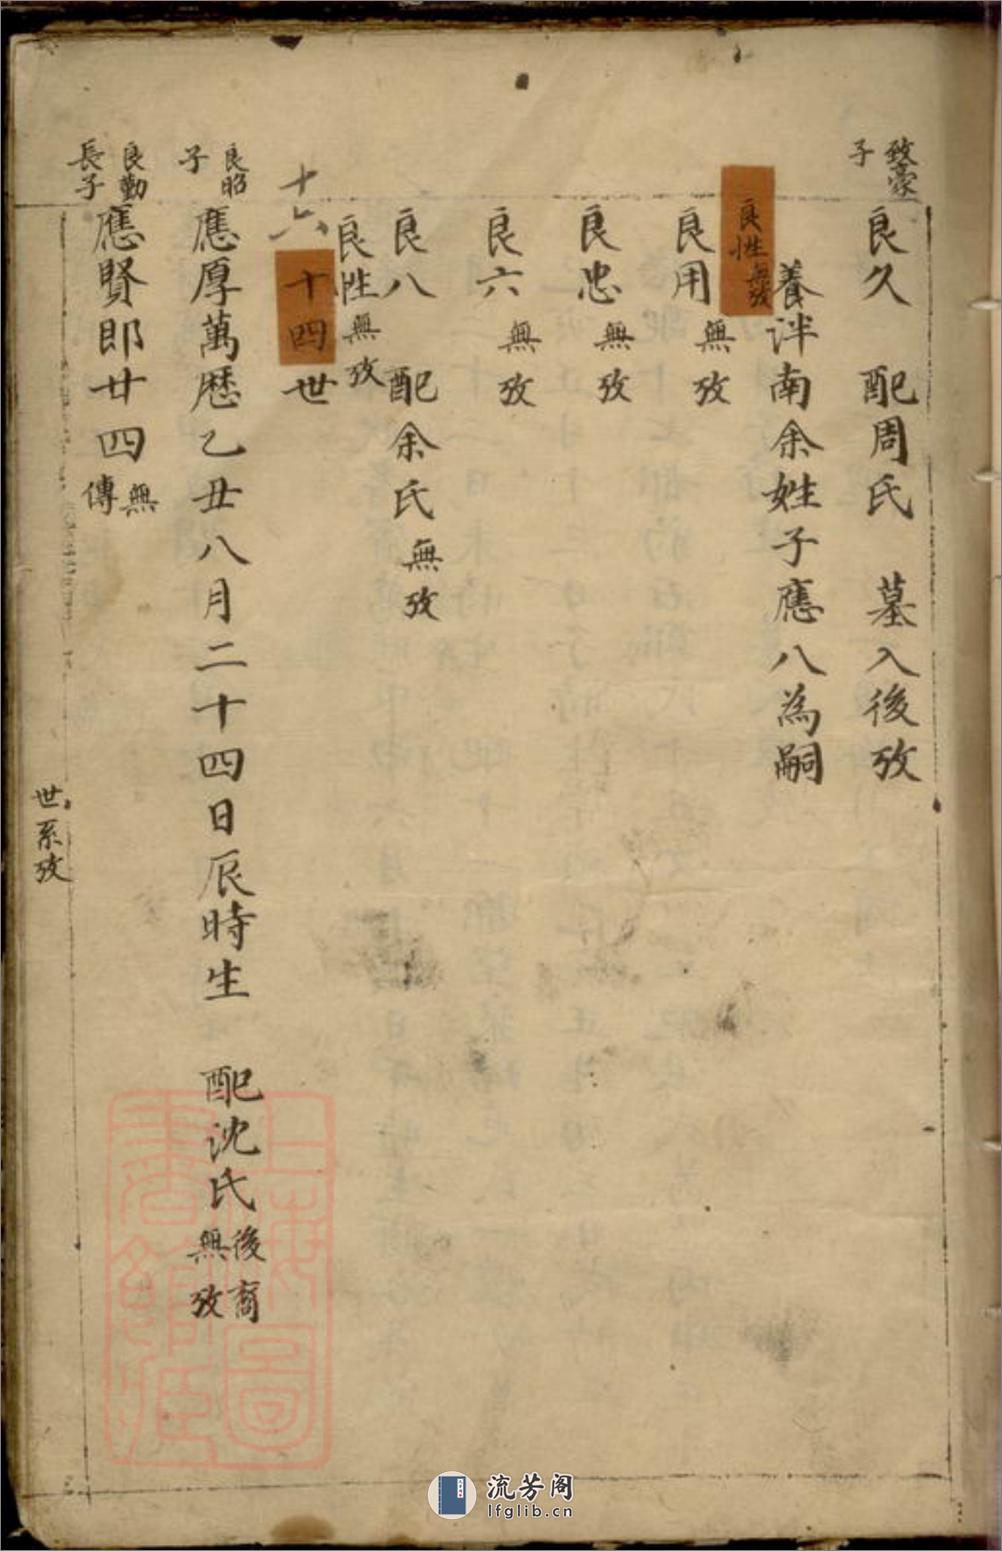 致豪子
良久 配周氏 墓入後攷
養泮南余姓子應八為嗣
良性無攷
良用 無攷
良忠 無攷
良六 無攷
良八 配余氏 無攷
良性 無攷
十六
十四世
良昭子
應厚萬歷乙丑八月二十四日辰時生 配沈氏 後裔無攷
良勤長子
應賢郎廿四 無傳
世系攷
上海圖書館藏
流芳阁
lfglib.cn